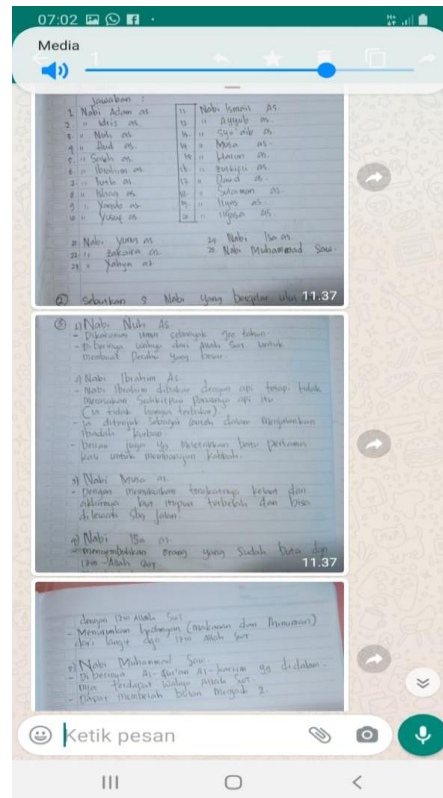 07:02
Media
Jawaban :
1 Nabi Adam as
2 " Idris as.
3 " Nuh as
4 " Hud as.
5 " Saleh as
6 " Ibrahim as
7 " Luth as.
8 " as
9 " as
10 " Yusuf as
11. Nabi as.
12. " Ayyub as.
13. " Syu'aib as.
14 " Musa as.
15 " Harun as.
16 " as.
17 " Daud as.
18. " Sulaiman as
19 " Ilyas as.
20 " Ilyasa as.
21 Nabi Yunus as
22 " Zakaria as
23 " Yahya as
24 Nabi Isa as
25 Nabi Muhammad Saw.
② Sebutkan 5 Nabi yang bergelar ulul
11.37
③ 1) Nabi Nuh As.
- Dikaruniai umur sebanyak 950 tahun.
- Diberinya wahyu dari Allah Swt untuk
membuat yang besar.
2) Nabi Ibrahim As.
- Nabi Ibrahim dibakar dengan api tetapi tidak
merasakan panasnya api itu
(ia tidak terbakar).
- Ia ditunjuk sebagai dalam menjalankan
ibadah kurban.
- Beliau juga yg meletakkan batu pertama
untuk membangun Kabbah.
3) Nabi Musa as.
- Dengan tongkatnya dan
akhirnya laut itupun terbelah dan bisa
dilewati sbg jalan.
4) Nabi Isa as.
- menyembuhkan orang yang sudah buta dan
izin Allah Swt
11.37
dengan izin Allah Swt
- Menurunkan hidangan (makanan dan Minuman)
dari langit dgn izin Allah Swt
5) Nabi Muhammad Saw.
- Diberinya Al-Qur'an Al-karim yg didalam-
nya terdapat wahyu Allah Swt.
- Dapat membelah bulan menjadi 2.
Ketik pesan